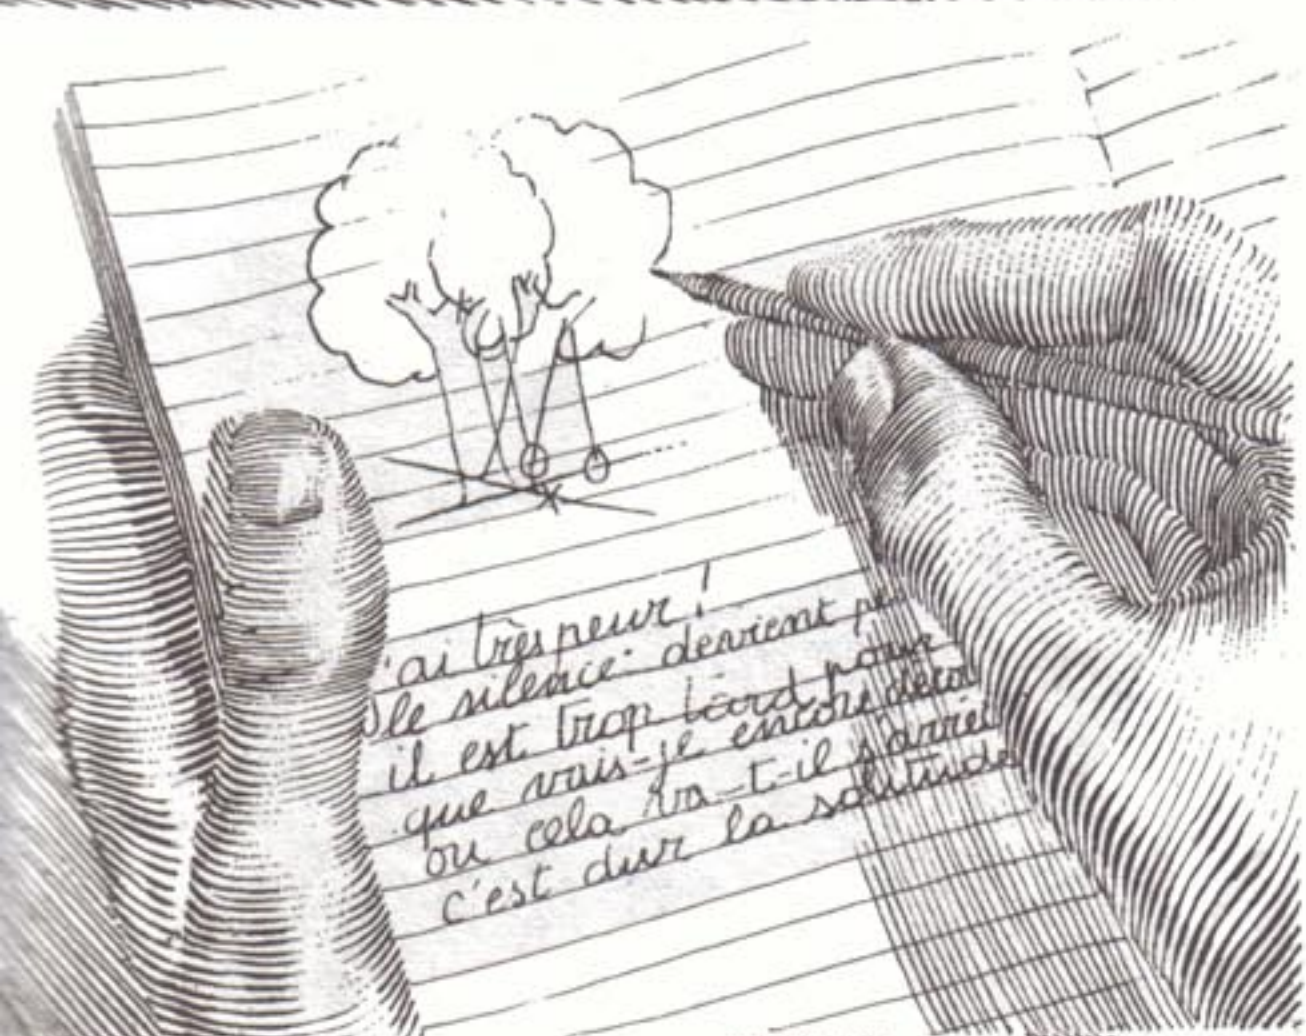 'ai très peur !
le silence devient
il est trop tard pour
que vais-je encore
ou cela va-t-il
c'est dur la solitude